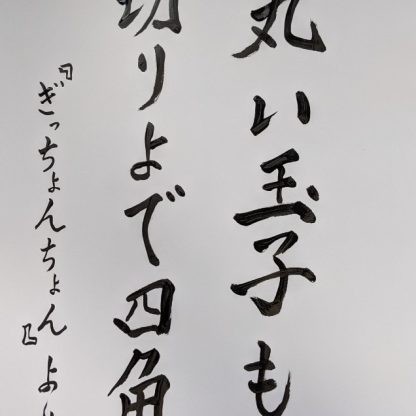 丸い玉子も
切りよで四角
『ぎっちょんちょん』よ